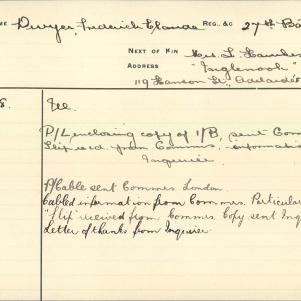 ME Dwyer, Frederick Claude REG., &C 27th Ba
NEXT OF KIN Mrs. L.
ADDRESS "Inglenook"
119 Hanson St. Adelaide
8.
P/L enclosing copy of 1/B, sent Com
Slip recd. from Comms. informatio
Inquirer.
P/Cable sent Commrs London.
Cabled information from Commrs. Particular
"Slip" received from Commrs. Copy sent Inq
Letter of thanks from Inquirer